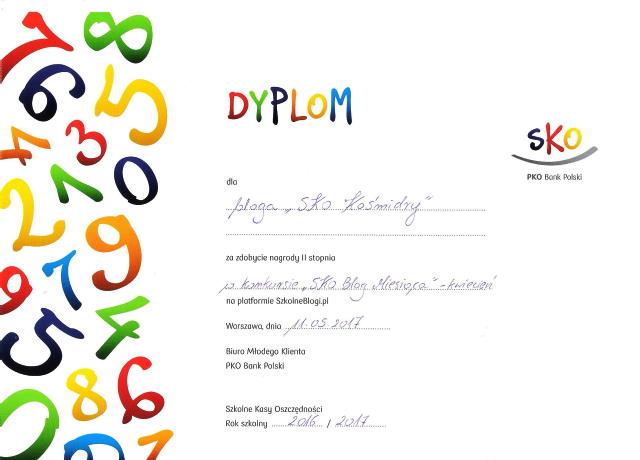 DYPLOM
SKO
PKO Bank Polski
dla
bloga „SKO Kośmidry"
za zdobycie nagrody II stopnia
w konkursie „SKO Blog Miesiąca" - kwiecień
na platformie SzkolneBlogi.pl
Warszawa, dnia 11.05.2017
Biuro Młodego Klienta
PKO Bank Polski
Szkolne Kasy Oszczędności
Rok szkolny 2016 / 2017